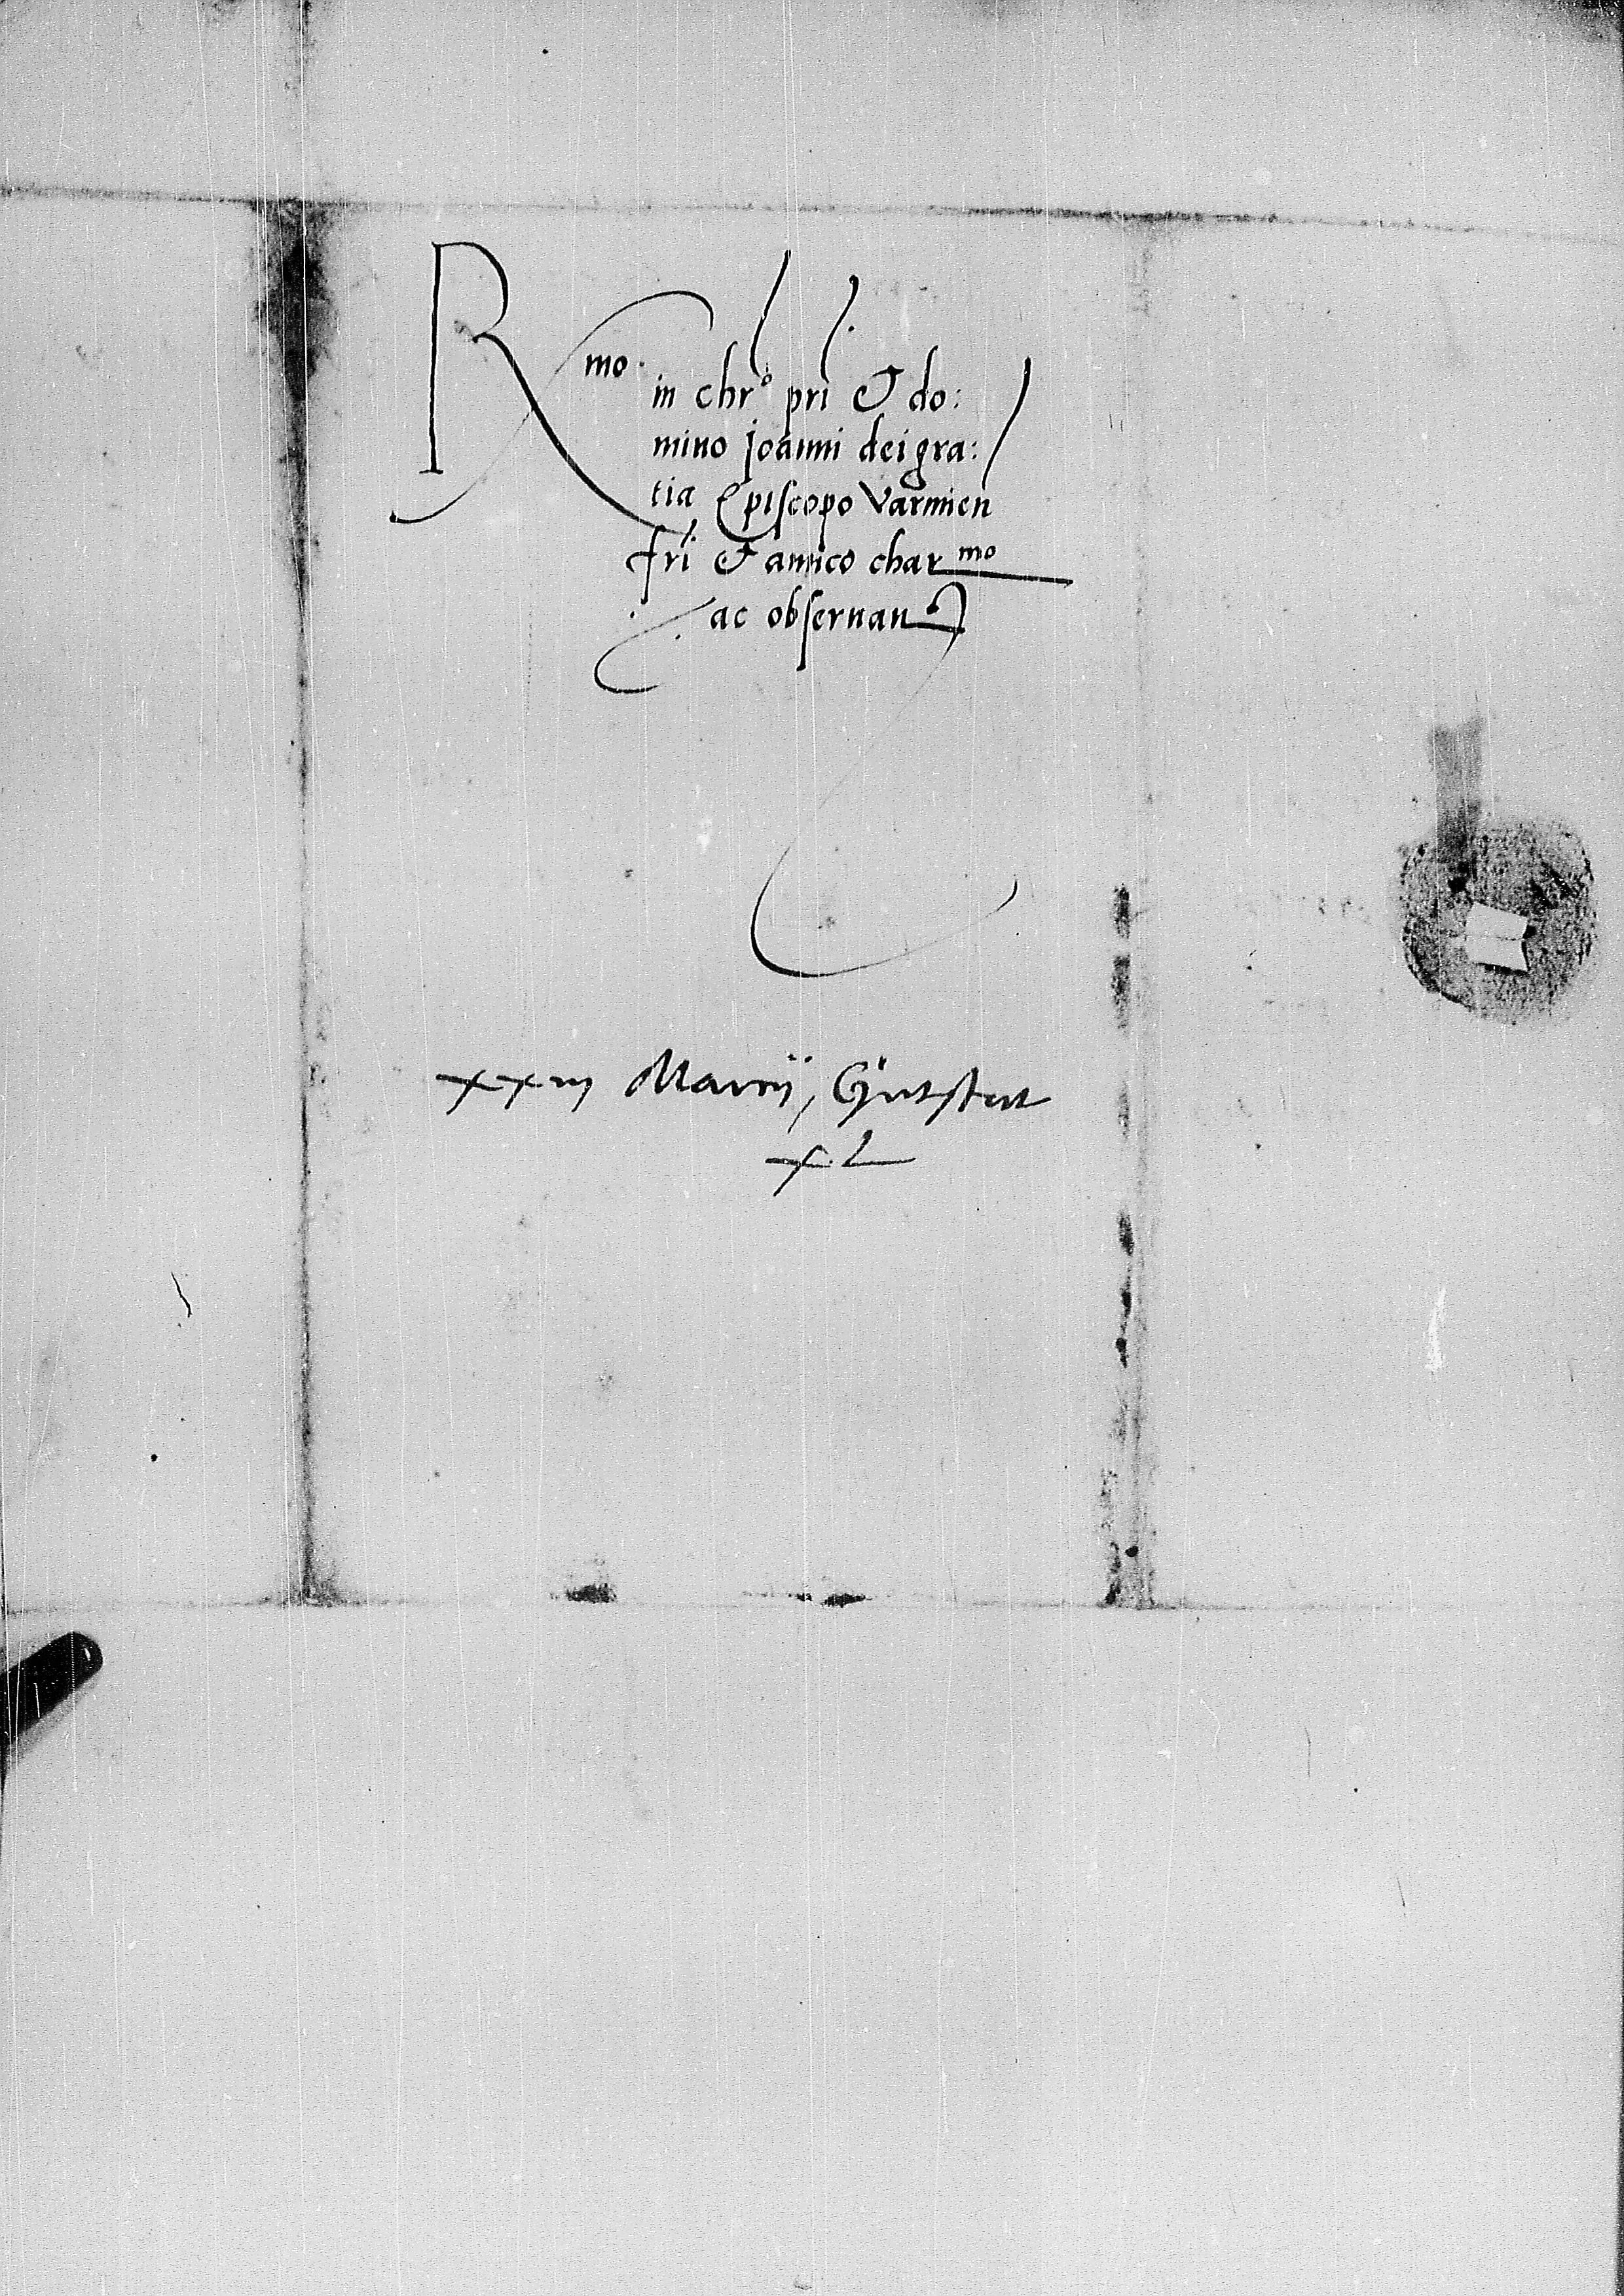 Rmo in chro pri & do:
mino Joanni dei gra:
tia Episcopo Varmien
fri & amico charmo
ac obseruan
xxiij Marcij, Gutstat
xL